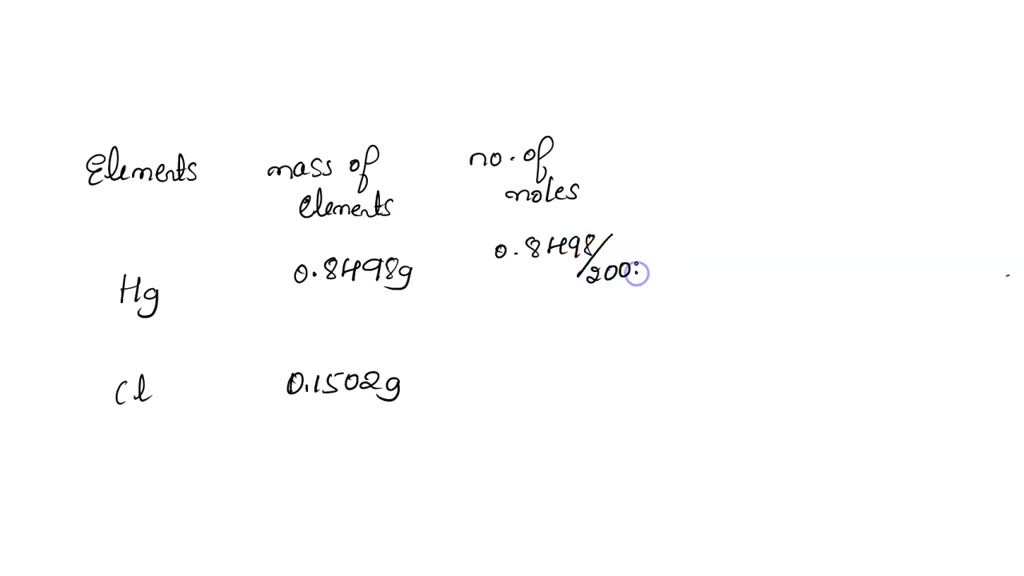 Elements mass of elements no. of moles
Hg 0.8498g 0.8498/200.
Cl 0.1502g